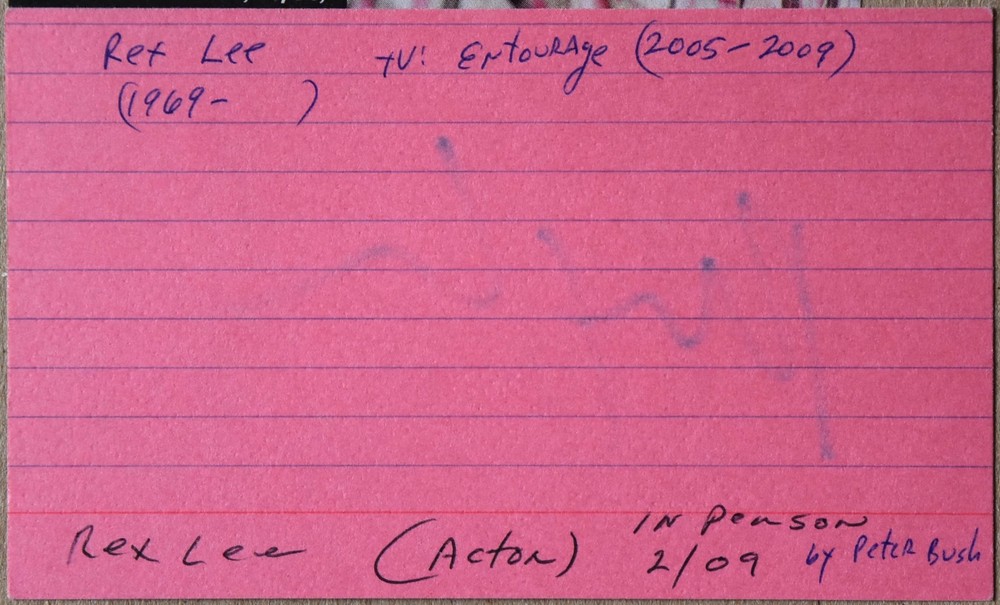 Rex Lee TV: Entourage (2005-2009)
(1969- )
Rex Lee (Actor) in person
2/09 by Peter Bush